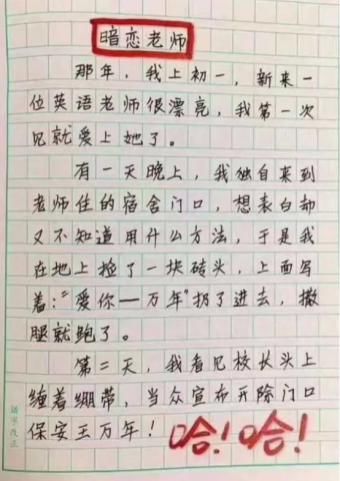 暗恋老师
那年，我上初一，新来一
位英语老师很漂亮，我第一次
见就爱上她了。
有一天晚上，我独自来到
老师住的宿舍门口，想表白却
又不知道用什么方法，于是我
在地上捡了一块砖头，上面写
着：“爱你一万年”扔了进去，撒
腿就跑了。
第二天，我看见校长头上
缠着绷带，当众宣布开除门口
保安王万年！
哈！哈！